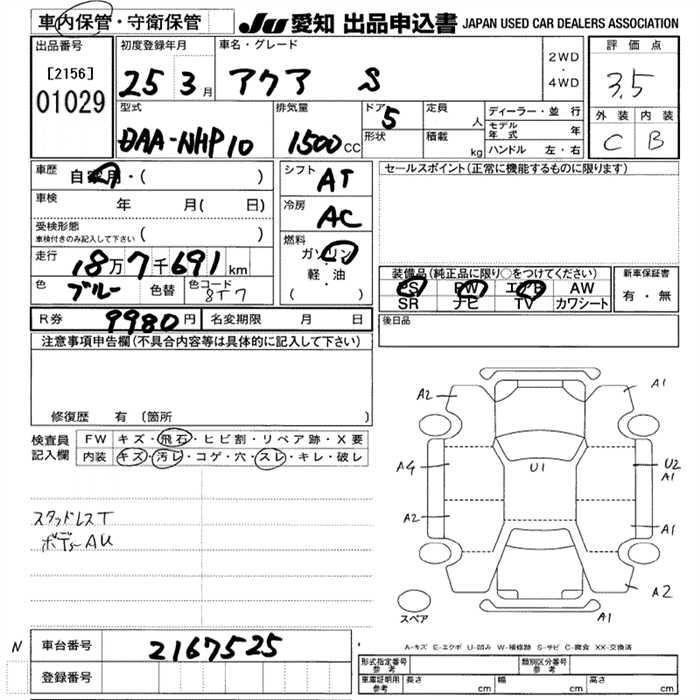 車内保管・守衛保管 JU 愛知 出品申込書 JAPAN USED CAR DEALERS ASSOCIATION
出品番号 初度登録年月 車名・グレード 2WD・4WD 評価点
[2156] 25 3月 アクア S 3.5
01029
型式 排気量 ドア 5 定員 人 ディーラー・並行 外装 内装
DAA-NHP10 1500CC 形状 積載 kg モデル年式 年 C B
ハンドル 左・右
車歴 自家用・( ) シフト AT セールスポイント(正常に機能するものに限ります)
車検 年 月( 日) 冷房 AC
受検形態
車検付きのみ記入して下さい ( )
燃料
走行 18万7千691km ガソリン・軽油 ( )
装備品(純正品に限り○をつけてください) 新車保証書
色 ブルー 色替 色コード 8T7
PS PW エアB AW 有・無
SR ナビ TV カワシート
R券 9980円 名変期限 月 日 後日品
注意事項申告欄(不具合内容等は具体的に記入して下さい)
修復歴 有 (箇所 )
検査員記入欄 FW キズ・飛石・ヒビ割・リペア跡・X要
内装 キズ・汚レ・コゲ・穴・スレ・キレ・破レ
スタッドレスT
ボデーAU
A2 A1
A4 U1 U2
A1
A2 A1
A2
スペア A1
A-キズ E-エクボ U-凹み W-補修跡 S-サビ C-腐食 XX-交換済
N 車台番号 2167525
登録番号
形式指定番号 参考 類別区分番号 参考
車庫証明用 参考 長さ cm 幅 cm 高さ cm